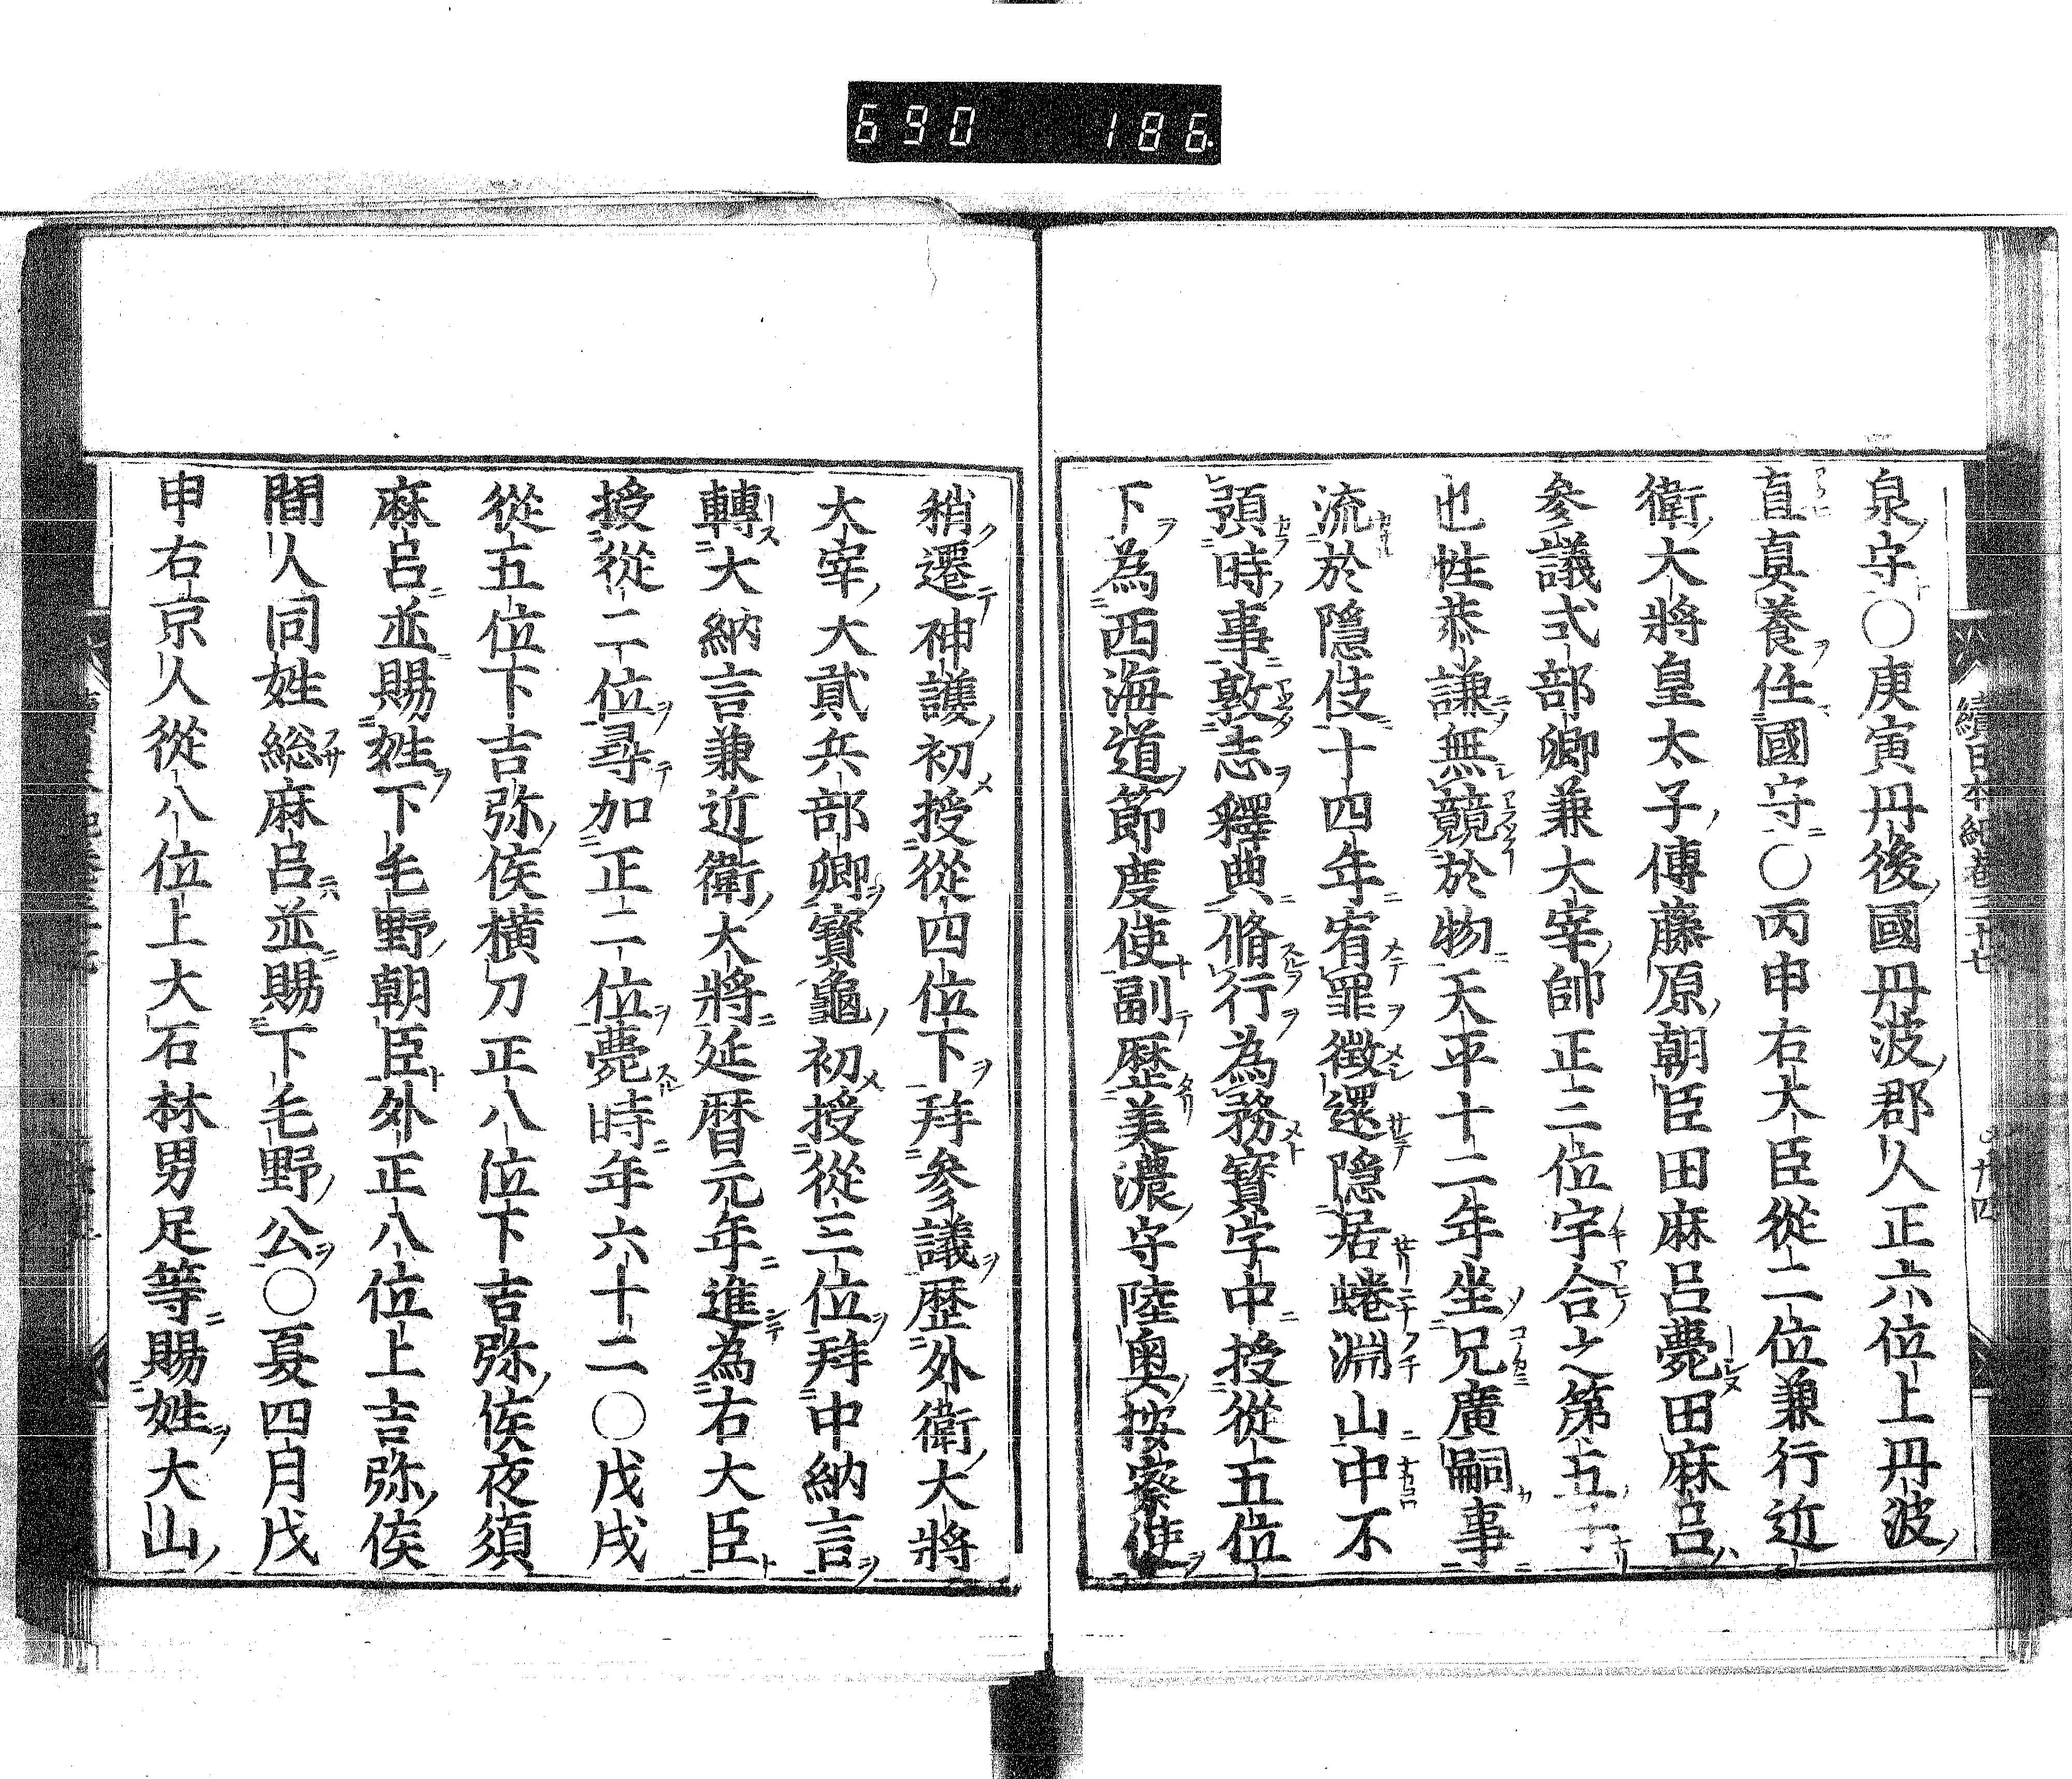 690 186
泉守○庚寅丹後國丹波郡人正六位上丹波
直真養任國守○丙申右大臣從二位兼行近
衛大將皇太子傅藤原朝臣田麻呂薨田麻呂
參議式部卿兼大宰帥正三位宇合之第五子
也性恭謙無競於物天平十二年坐兄廣嗣事
流於隱伎十四年宥罪徵還隱居蜷淵山中不
預時事敦志釋典脩行為務寶字中授從五位
下為西海道節度使副歷美濃守陸奧按察使
稍遷神護初授從四位下拜參議歷外衛大將
大宰大貳兵部卿寶龜初授從三位拜中納言
轉大納言兼近衛大將延曆元年進為右大臣
授從二位尋加正二位薨時年六十二○戊戌
從五位下吉弥侯橫刀正八位下吉弥侯夜須
麻呂並賜姓下毛野朝臣外正八位上吉弥侯
間人同姓総麻呂並賜下毛野公○夏四月戊
申右京人從八位上大石林男足等賜姓大山